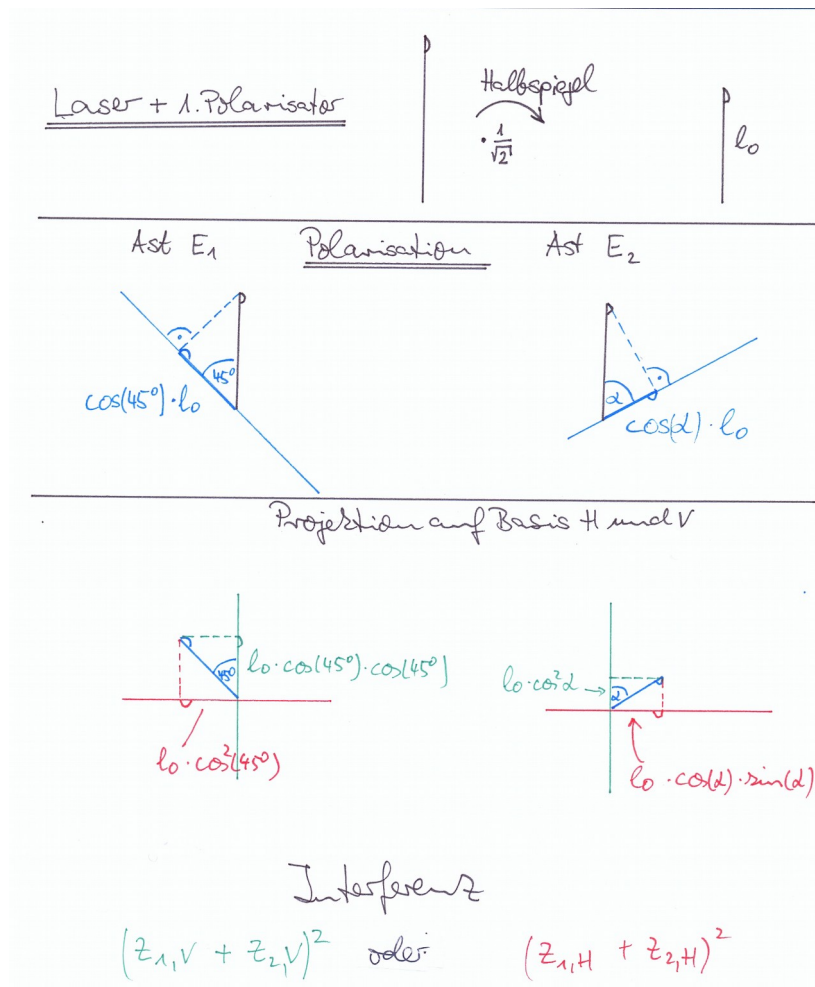 Halbspiegel
Laser + 1. Polarisator
· 1/√2
l₀
Ast E₁ Polarisation Ast E₂
45°
α
cos(45°)·l₀
cos(α)·l₀
Projektion auf Basis H und V
45°
l₀·cos(45°)·cos(45°)
l₀·cos²α
α
l₀·cos²(45°)
l₀·cos(α)·sin(α)
Interferenz
(Z₁,V + Z₂,V)² oder (Z₁,H + Z₂,H)²